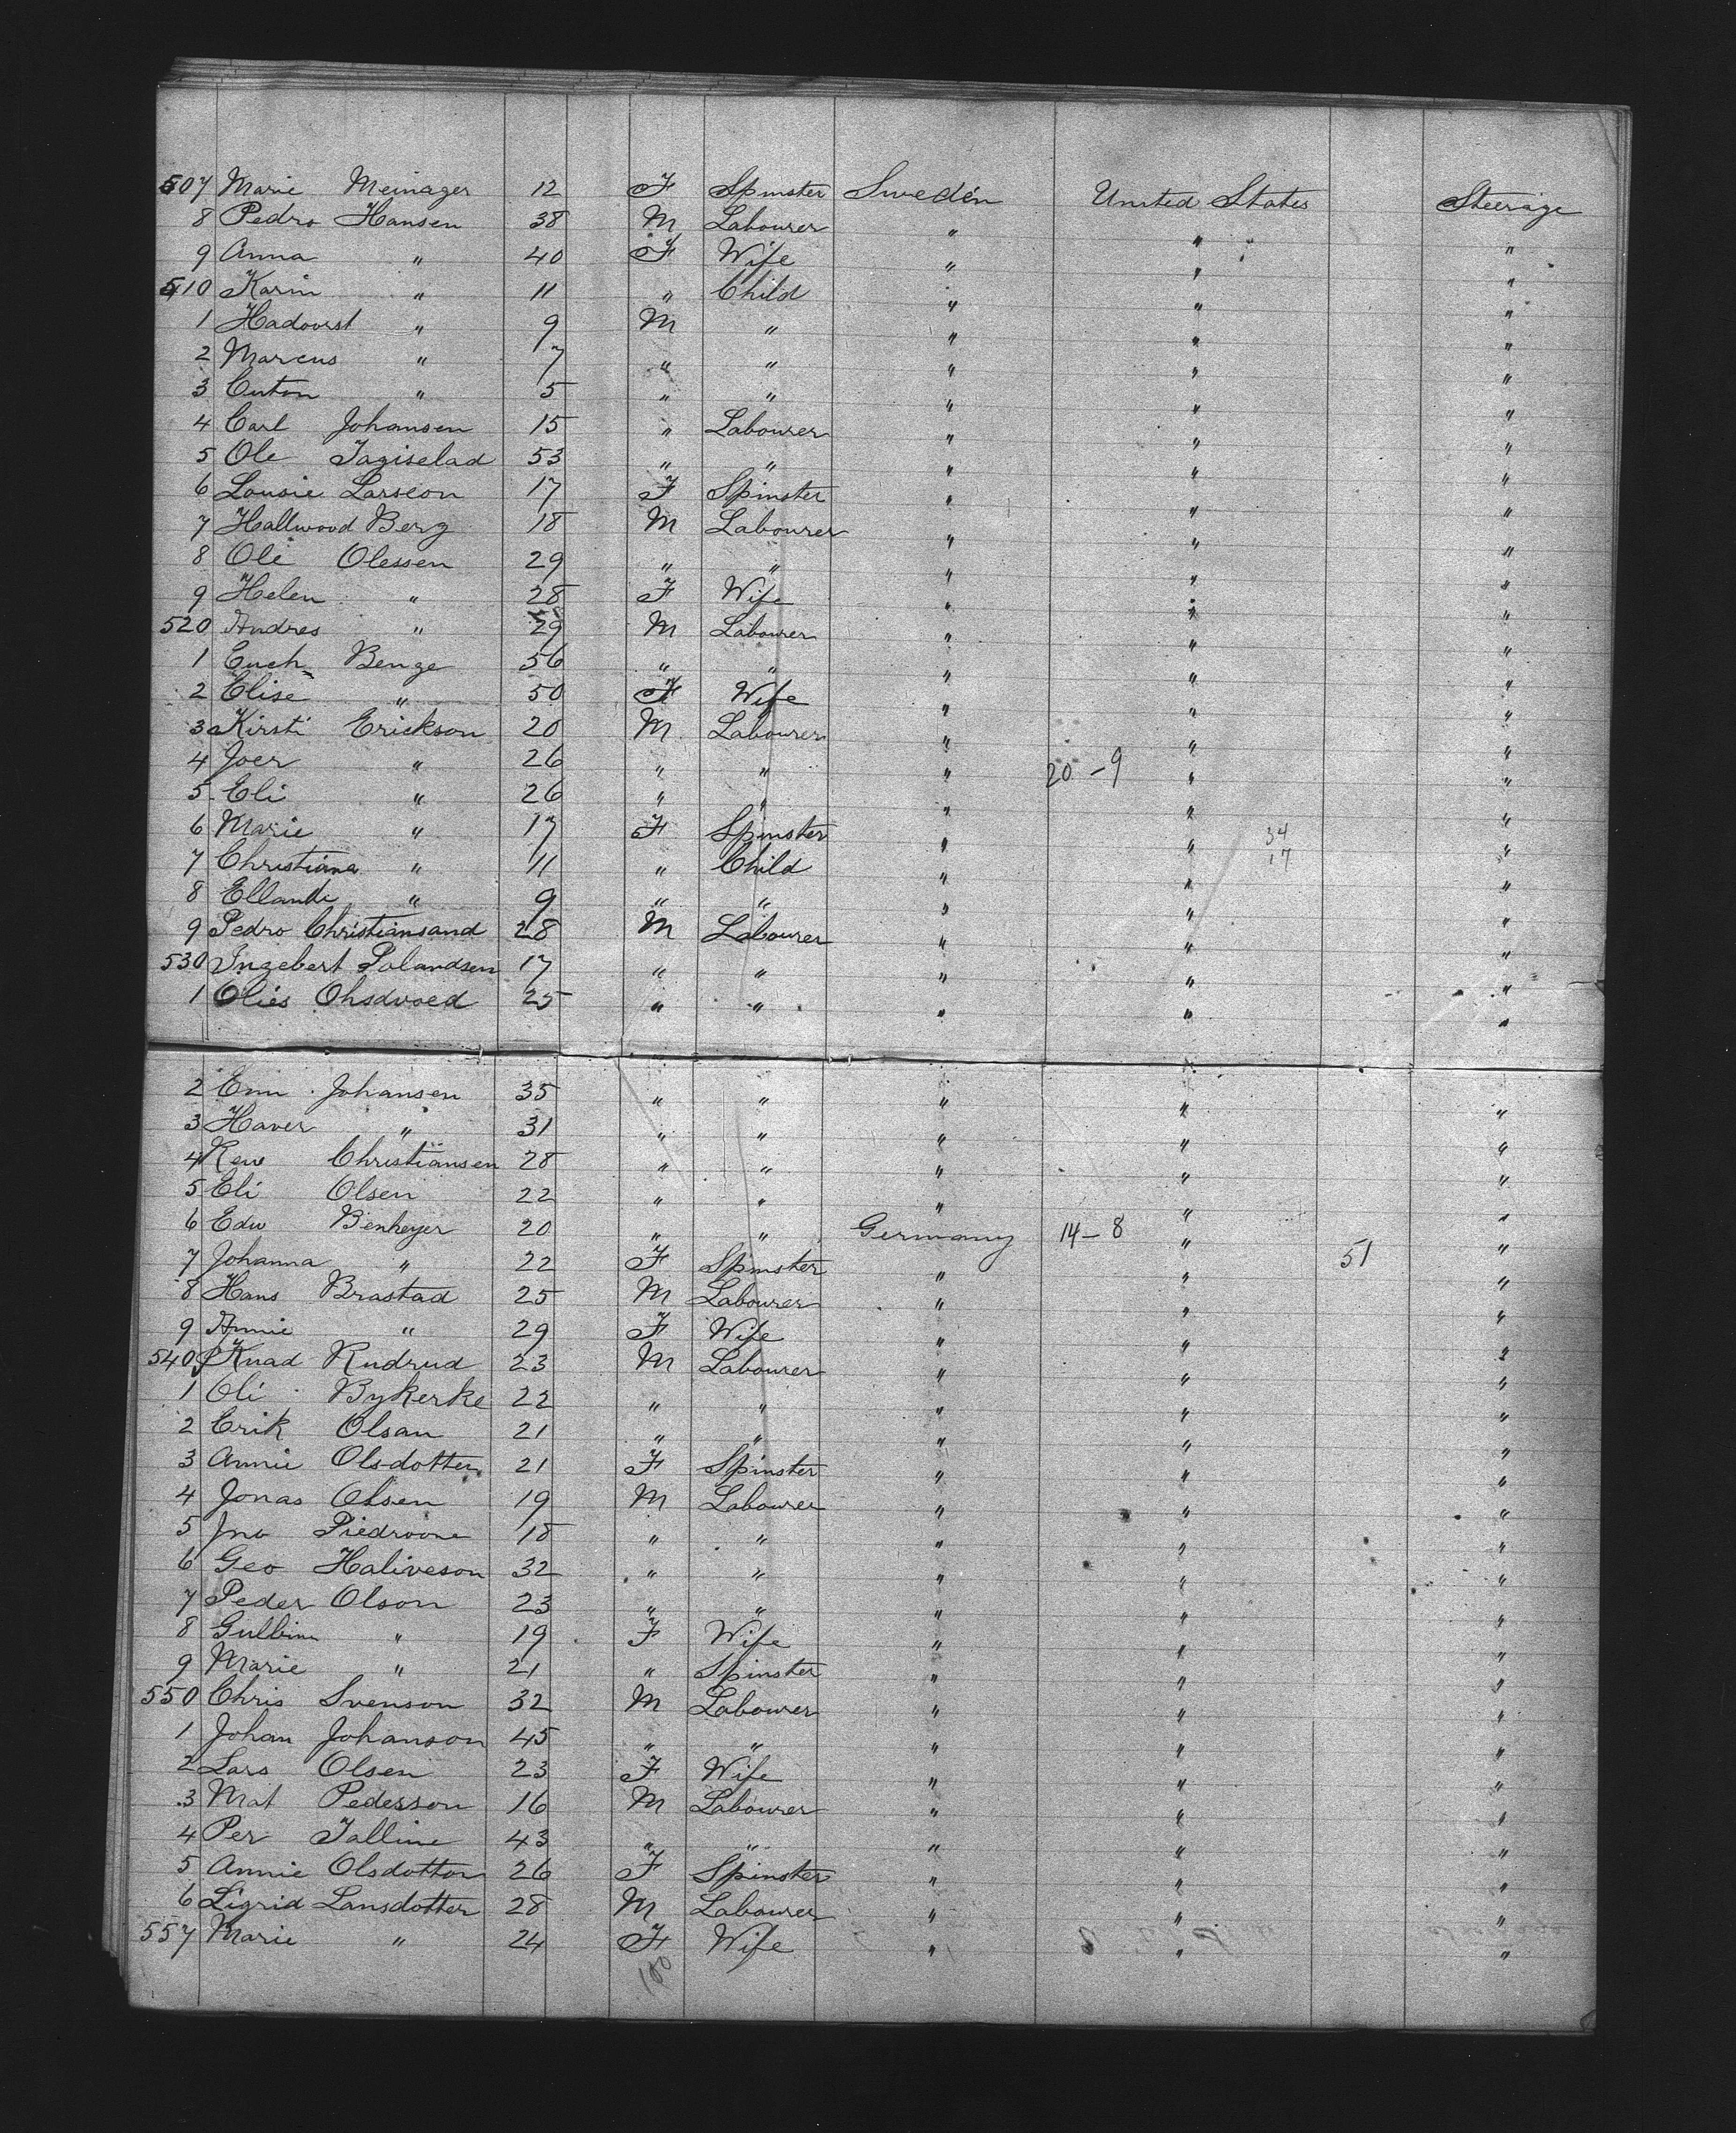 507 Marie Meinager 12 F Spinster Sweden United States Steerage
8 Pedro Hansen 38 M Labourer " " "
9 Anna " 40 F Wife " " "
510 Karin " 11 " Child " " "
1 Hadovrst " 9 M " " " "
2 Marcus " 7 " " " " "
3 Cuton " 5 " " " " "
4 Carl Johansen 15 " Labourer " " "
5 Ole Jagiselad 53 " " " " "
6 Lousie Larseon 17 F Spinster " " "
7 Hallwood Berg 18 M Labourer " " "
8 Ole Olessen 29 " " " " "
9 Helen " 28 F Wife " " "
520 Andres " 29 M Labourer " " "
1 Euch Benge 56 " " " " "
2 Elise " 50 F Wife " " "
3 Kirsti Erickson 20 M Labourer " " "
4 Joer " 26 " " " 20-9 " "
5 Eli " 26 " " " " "
6 Marie " 17 F Spinster " " 34 "
17
7 Christiana " 11 " Child " " "
8 Ellande " 9 " " " " "
9 Pedro Christiansand 28 M Labourer " " "
530 Ingebert Polandsen 17 " " " " "
1 Olies Ohsdvoed 25 " " " " "
2 Enn Johansen 35 " " " " "
3 Haver " 31 " " " " "
4 Rew Christiansen 28 " " " " "
5 Eli Olsen 22 " " " " "
6 Edw Benheyer 20 " " Germany 14-8 " "
7 Johanna " 22 F Spinster " " 51 "
8 Hans Brastad 25 M Labourer " " "
9 Annie " 29 F Wife " " "
540 Knad Rudrud 23 M Labourer " " "
1 Oli Bykerke 22 " " " " "
2 Erik Olsan 21 " " " " "
3 Annie Olsdotter 21 F Spinster " " "
4 Jonas Olsen 19 M Labourer " " "
5 Jno Piedroone 18 " " " " "
6 Geo Haliveson 32 " " " " "
7 Peder Olson 23 " " " " "
8 Gulbine " 19 F Wife " " "
9 Marie " 21 " Spinster " " "
550 Chris Svenson 32 M Labourer " " "
1 Johan Johanson 45 " " " " "
2 Lars Olsen 23 F Wife " " "
3 Mat Pedersson 16 M Labourer " " "
4 Per Talline 43 " " " " "
5 Annie Olsdotton 26 F Spinster " " "
6 Sigrid Lansdotter 28 M Labourer " " "
557 Marie " 24 F Wife " " "
100